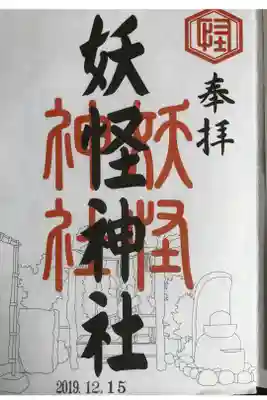 怪
奉拝
妖怪神社
妖怪
神社
2019.12.15